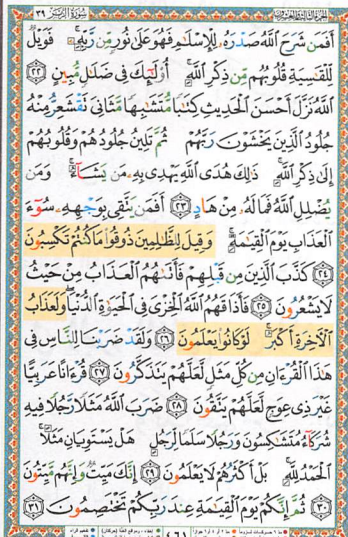 سُورَةُ الزُّمَرِ ٣٩
أَفَمَن شَرَحَ اللَّهُ صَدْرَهُ لِلْإِسْلَامِ فَهُوَ عَلَىٰ نُورٍ مِّن رَّبِّهِ ۚ فَوَيْلٌ
لِّلْقَاسِيَةِ قُلُوبُهُم مِّن ذِكْرِ اللَّهِ ۚ أُولَٰئِكَ فِي ضَلَالٍ مُّبِينٍ ٢٢
اللَّهُ نَزَّلَ أَحْسَنَ الْحَدِيثِ كِتَابًا مُّتَشَابِهًا مَّثَانِيَ تَقْشَعِرُّ مِنْهُ
جُلُودُ الَّذِينَ يَخْشَوْنَ رَبَّهُمْ ثُمَّ تَلِينُ جُلُودُهُمْ وَقُلُوبُهُمْ
إِلَىٰ ذِكْرِ اللَّهِ ۚ ذَٰلِكَ هُدَى اللَّهِ يَهْدِي بِهِ مَن يَشَاءُ ۚ وَمَن
يُضْلِلِ اللَّهُ فَمَا لَهُ مِنْ هَادٍ ٢٣ أَفَمَن يَتَّقِي بِوَجْهِهِ سُوءَ
الْعَذَابِ يَوْمَ الْقِيَامَةِ ۚ وَقِيلَ لِلظَّالِمِينَ ذُوقُوا مَا كُنتُمْ تَكْسِبُونَ
٢٤ كَذَّبَ الَّذِينَ مِن قَبْلِهِمْ فَأَتَاهُمُ الْعَذَابُ مِنْ حَيْثُ
لَا يَشْعُرُونَ ٢٥ فَأَذَاقَهُمُ اللَّهُ الْخِزْيَ فِي الْحَيَاةِ الدُّنْيَا ۖ وَلَعَذَابُ
الْآخِرَةِ أَكْبَرُ ۚ لَوْ كَانُوا يَعْلَمُونَ ٢٦ وَلَقَدْ ضَرَبْنَا لِلنَّاسِ فِي
هَٰذَا الْقُرْءَانِ مِن كُلِّ مَثَلٍ لَّعَلَّهُمْ يَتَذَكَّرُونَ ٢٧ قُرْءَانًا عَرَبِيًّا
غَيْرَ ذِي عِوَجٍ لَّعَلَّهُمْ يَتَّقُونَ ٢٨ ضَرَبَ اللَّهُ مَثَلًا رَّجُلًا فِيهِ
شُرَكَاءُ مُتَشَاكِسُونَ وَرَجُلًا سَلَمًا لِّرَجُلٍ هَلْ يَسْتَوِيَانِ مَثَلًا ۚ
الْحَمْدُ لِلَّهِ ۚ بَلْ أَكْثَرُهُمْ لَا يَعْلَمُونَ ٢٩ إِنَّكَ مَيِّتٌ وَإِنَّهُم مَّيِّتُونَ
٣٠ ثُمَّ إِنَّكُمْ يَوْمَ الْقِيَامَةِ عِندَ رَبِّكُمْ تَخْتَصِمُونَ ٣١
٤٦١